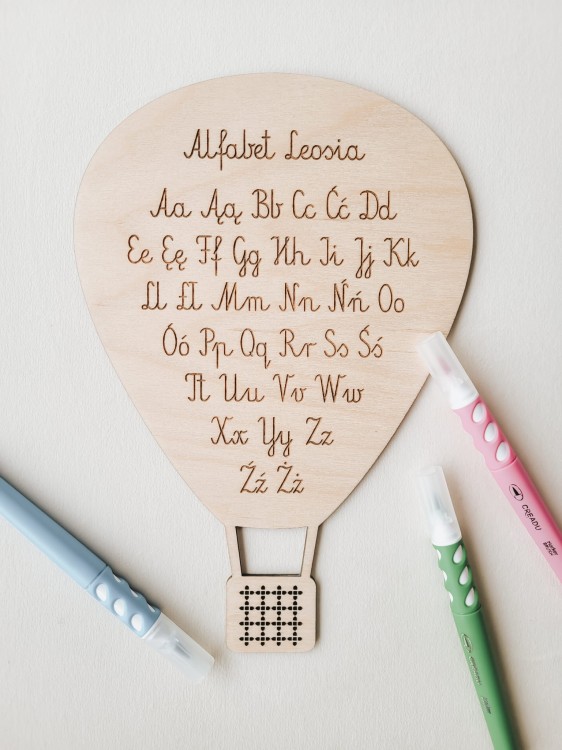 Alfabet Leosia
Aa Ąą Bb Cc Ćć Dd
Ee Ęę Ff Gg Hh Ii Jj Kk
Ll Łł Mm Nn Ńń Oo
Óó Pp Qq Rr Ss Śś
Tt Uu Vv Ww
Xx Yy Zz
Źź Żż
CREADU